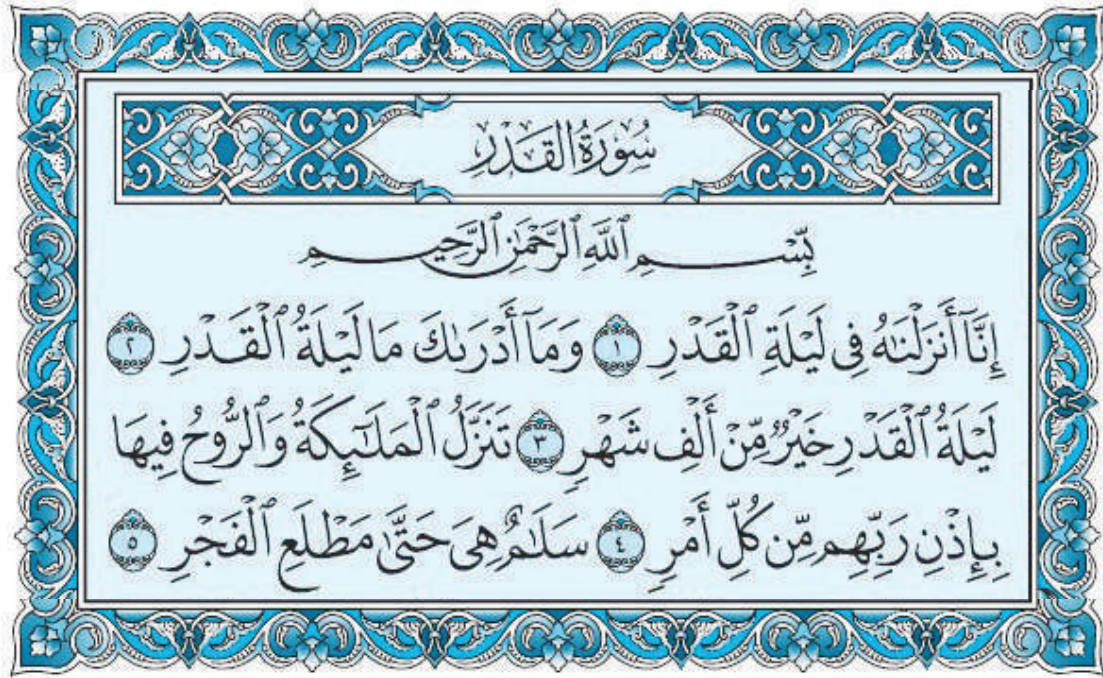 سُورَةُ القَدۡرِ
بِّسۡمِ ٱللَّهِ ٱلرَّحۡمَٰنِ ٱلرَّحِيمِ
إِنَّآ أَنزَلۡنَٰهُ فِي لَيۡلَةِ ٱلۡقَدۡرِ ١ وَمَآ أَدۡرَىٰكَ مَا لَيۡلَةُ ٱلۡقَدۡرِ ٢
لَيۡلَةُ ٱلۡقَدۡرِ خَيۡرٞ مِّنۡ أَلۡفِ شَهۡرٖ ٣ تَنَزَّلُ ٱلۡمَلَٰٓئِكَةُ وَٱلرُّوحُ فِيهَا
بِإِذۡنِ رَبِّهِم مِّن كُلِّ أَمۡرٖ ٤ سَلَٰمٌ هِيَ حَتَّىٰ مَطۡلَعِ ٱلۡفَجۡرِ ٥